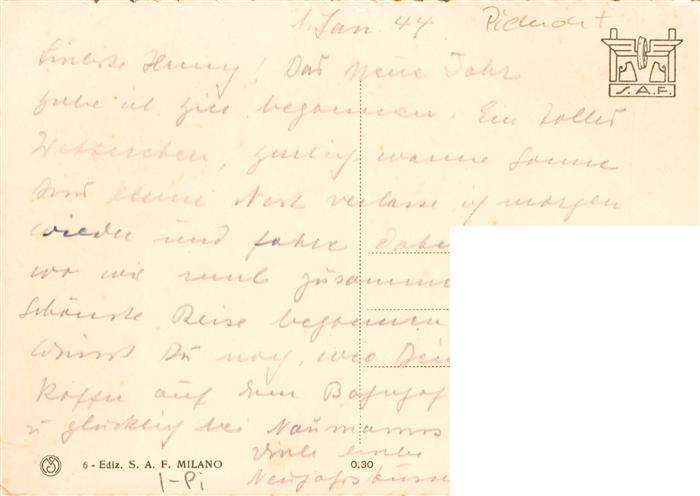 1. Jan 44 Piemont
S.A.F.
Liebste Hanny! Das Neue Jahr
habe ich hier begonnen. Ein tolles
herrlich warme Sonne
kleine Nest verlasse ich morgen
wieder und fahre
wo wir zusammen
schönste Reise begonnen
Du noch, wie Dein
Koffer auf dem Bahnhof
glücklich bei Naumanns
viele liebe
Neujahrsküsse
6 - Ediz. S. A. F. MILANO 0,30
1-Pi